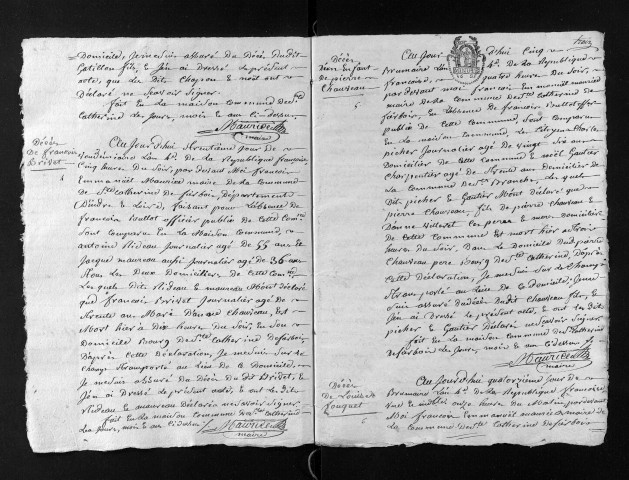 Domicile, Je me suis assuré du Décès dudit
Gatillon fils, & J'en ai Dressé le présent
acte, que les Dits Chapeau & Noël ont
Déclaré ne Savoir Signer
fait En la maison Commune de Ste
Catherine les Jours, mois & an Ci dessus.
Mauricemm
maire
Décès
De françois
Brivet
6
Aujourd'hui trentième jour de
Vendémiaire l'an 4e de la République française
Cinq heures du Soir, par Devant Moi françois
Emmanuel Maurice maire de la Commune
de Ste Catherine de fierbois, Département
D'indre & Loire, faisant pour L'absence de
françois Ballot officier public de Cette Comne
sont Comparus En la Maison Commune,
antoine Rideau Journalier agé de 55 ans &
Jacque maureau aussi Journalier agé de 36 ans
tous les Deux Domiciliers de Cette Comne
Les quels Dits Rideau & maureau M'ont déclaré
que françois Brivet Journalier agé de
trente ans Marié D'anne Chauveau, Est
Mort hier à Dix heures du Soir, En son
Domicile bourg de Ste Catherine de fierbois,
D'après Cette Déclaration, Je me suis Sur le
Champ transporté au Lieu de Ce Domicile,
Je me suis assuré du Décès du dit Brivet, &
J'en ai Dressé le présent acte, & ont les Dits
Rideau & maureau Déclaré ne savoir Signer
fait En la maison Commune de Ste Catherine
les Jours, mois & an Ci dessus
Mauricemm
maire
trois
Décès
d'un Enfant
de pierre
Chauveau
6
Aujourd'hui Cinq
Brumaire l'an 4e de la République
française, quatre heures du Soir,
par Devant moi françois Emmanuel Maurice
maire de la Commune de Ste Catherine de
fierbois, En L'absence de françois Ballot officier
public de Cette Commune, sont Comparus
En la maison Commune, Les Citoyens Charles
picher Journalier agé de vingt Six ans
Domicilier de Cette Commune & noël Gautier
Charpentier agé de trente ans Domicilier de
la Commune de Ste Branche, Les quels
Dits picher & Gautier M'ont Déclaré que
pierre Chauveau, fils de pierre Chauveau &
D'anne Villeret Ses pere & mere Domiciliers
de Cette Commune Est mort hier à trois
heures du Soir, Dans le Domicile dudit pierre
Chauveau pere bourg de Ste Catherine, D'après
Cette Déclaration, Je me suis Sur le Champ
transporté au Lieu de Ce Domicile, Je me
suis assuré du Décès du dit Chauveau fils, &
J'en ai Dressé le présent acte, & ont les Dits
picher & Gautier Déclaré ne savoir Signer
fait En la maison Commune de Ste Catherine
de fierbois les Jours, mois & an Ci dessus
Mauricemm
maire
Décès
De Louise
fouquet
6
Aujourd'hui quatorzième jour de
Brumaire l'an 4e de la République française
une & indivisible onze heures du Matin, par devant
Moi françois Emmanuel maurice maire de
la Commune de Ste Catherine de fierbois